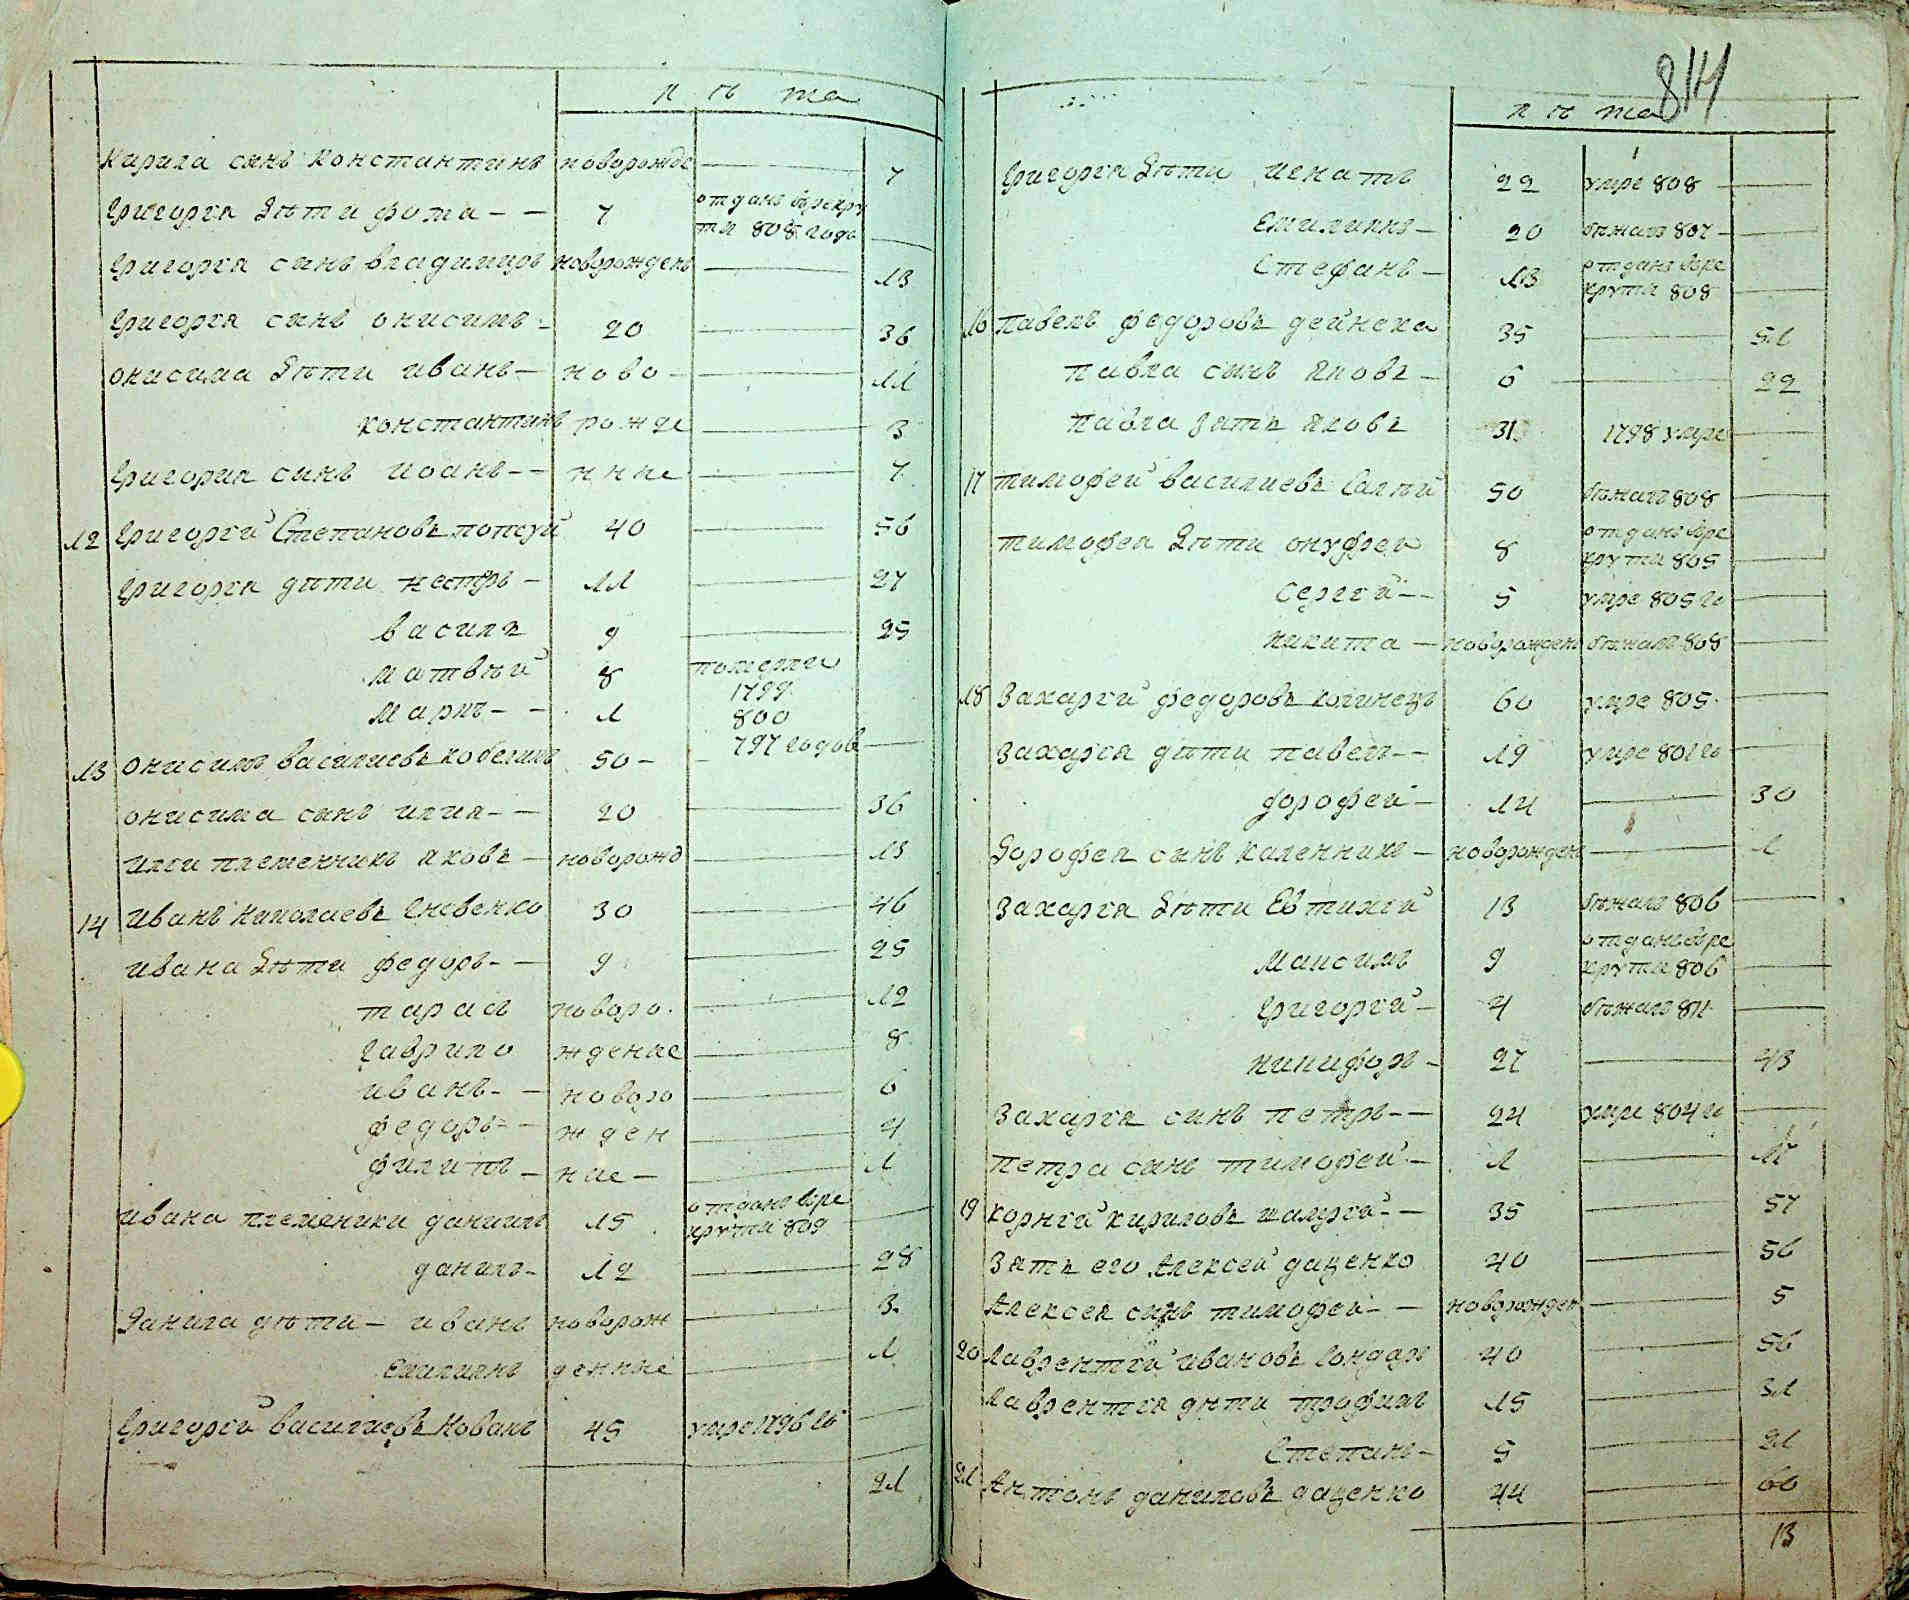 лѣта
Кирила сынъ Константинъ новорожде 7
Григорія дѣти Фома 7 отданъ врекру
ты 808 годъ
Григорія сынъ владимиръ новорожденъ 13
Григорія сынъ онисимъ 20 36
онисима дѣти иванъ ново 11
константинъ рожде 3
Григорія сынъ иоанъ нные 7
12 Григорій Степановъ попсуй 40 56
Григорія дѣти нестеръ 11 27
василь 9 25
матвѣй 8 померли
1799
маркъ 1 800
797 годов
13 онисимъ василиевъ кобелевъ 50
онисима сынъ илия 20 36
илїи племенникъ яковъ новорожд 15
14 иванъ николаевъ Гневенко 30 46
ивана дѣти федоръ 9 25
тарасъ новоро 12
гаврило жденые 8
иванъ новоро 6
федоръ жден 4
филипъ ные 1
ивана племеники даниилъ 15 отданъ вре
круты 809
данило 12 28
Данила дѣти иванъ новорож 3
Емилиянъ денные 1
Григорій василиевъ Ковалъ 45 умре 1796 го
21
814
лѣта
Григорія дѣти игнатъ 22 умре 808
Емилиянъ 20 бѣжалъ 807
Стефанъ 13 отданъ вре
круты 808
16 павелъ федоровъ дейнека 35 51
павла сынъ яковъ 6 22
павла зять яковъ 31 1798 умре
17 тимофей василиевъ 50 бѣжалъ 808
тимофея дѣти онуфрей 8 отданъ вре
круты 805
Сергій 5 умре 805 го
никита новорожденъ бѣжалъ 808
18 Захарій федоровъ 60 умре 805
Захарія дѣти павелъ 19 умре 801 го
дорофей 14 30
Дорофея сынъ каленникъ новорожденъ 1
Захарія дѣти Евтихій 13 бѣжалъ 806
Максимъ 9 отданъ вре
круты 806
Григорій 4 бѣжалъ 811
никифоръ 27 43
Захарія сынъ петръ 24 умре 804 го
петра сынъ тимофей 1 17
19 корнѣй кириловъ 35 57
Зять его Алексей даценко 40 56
Алексея сынъ тимофей новорожден 5
20 Лаврентій ивановъ бондарь 40 56
Лаврентія дѣти трофимъ 15 31
Степанъ 5 21
21 Антонъ даниловъ даценко 44 60
13